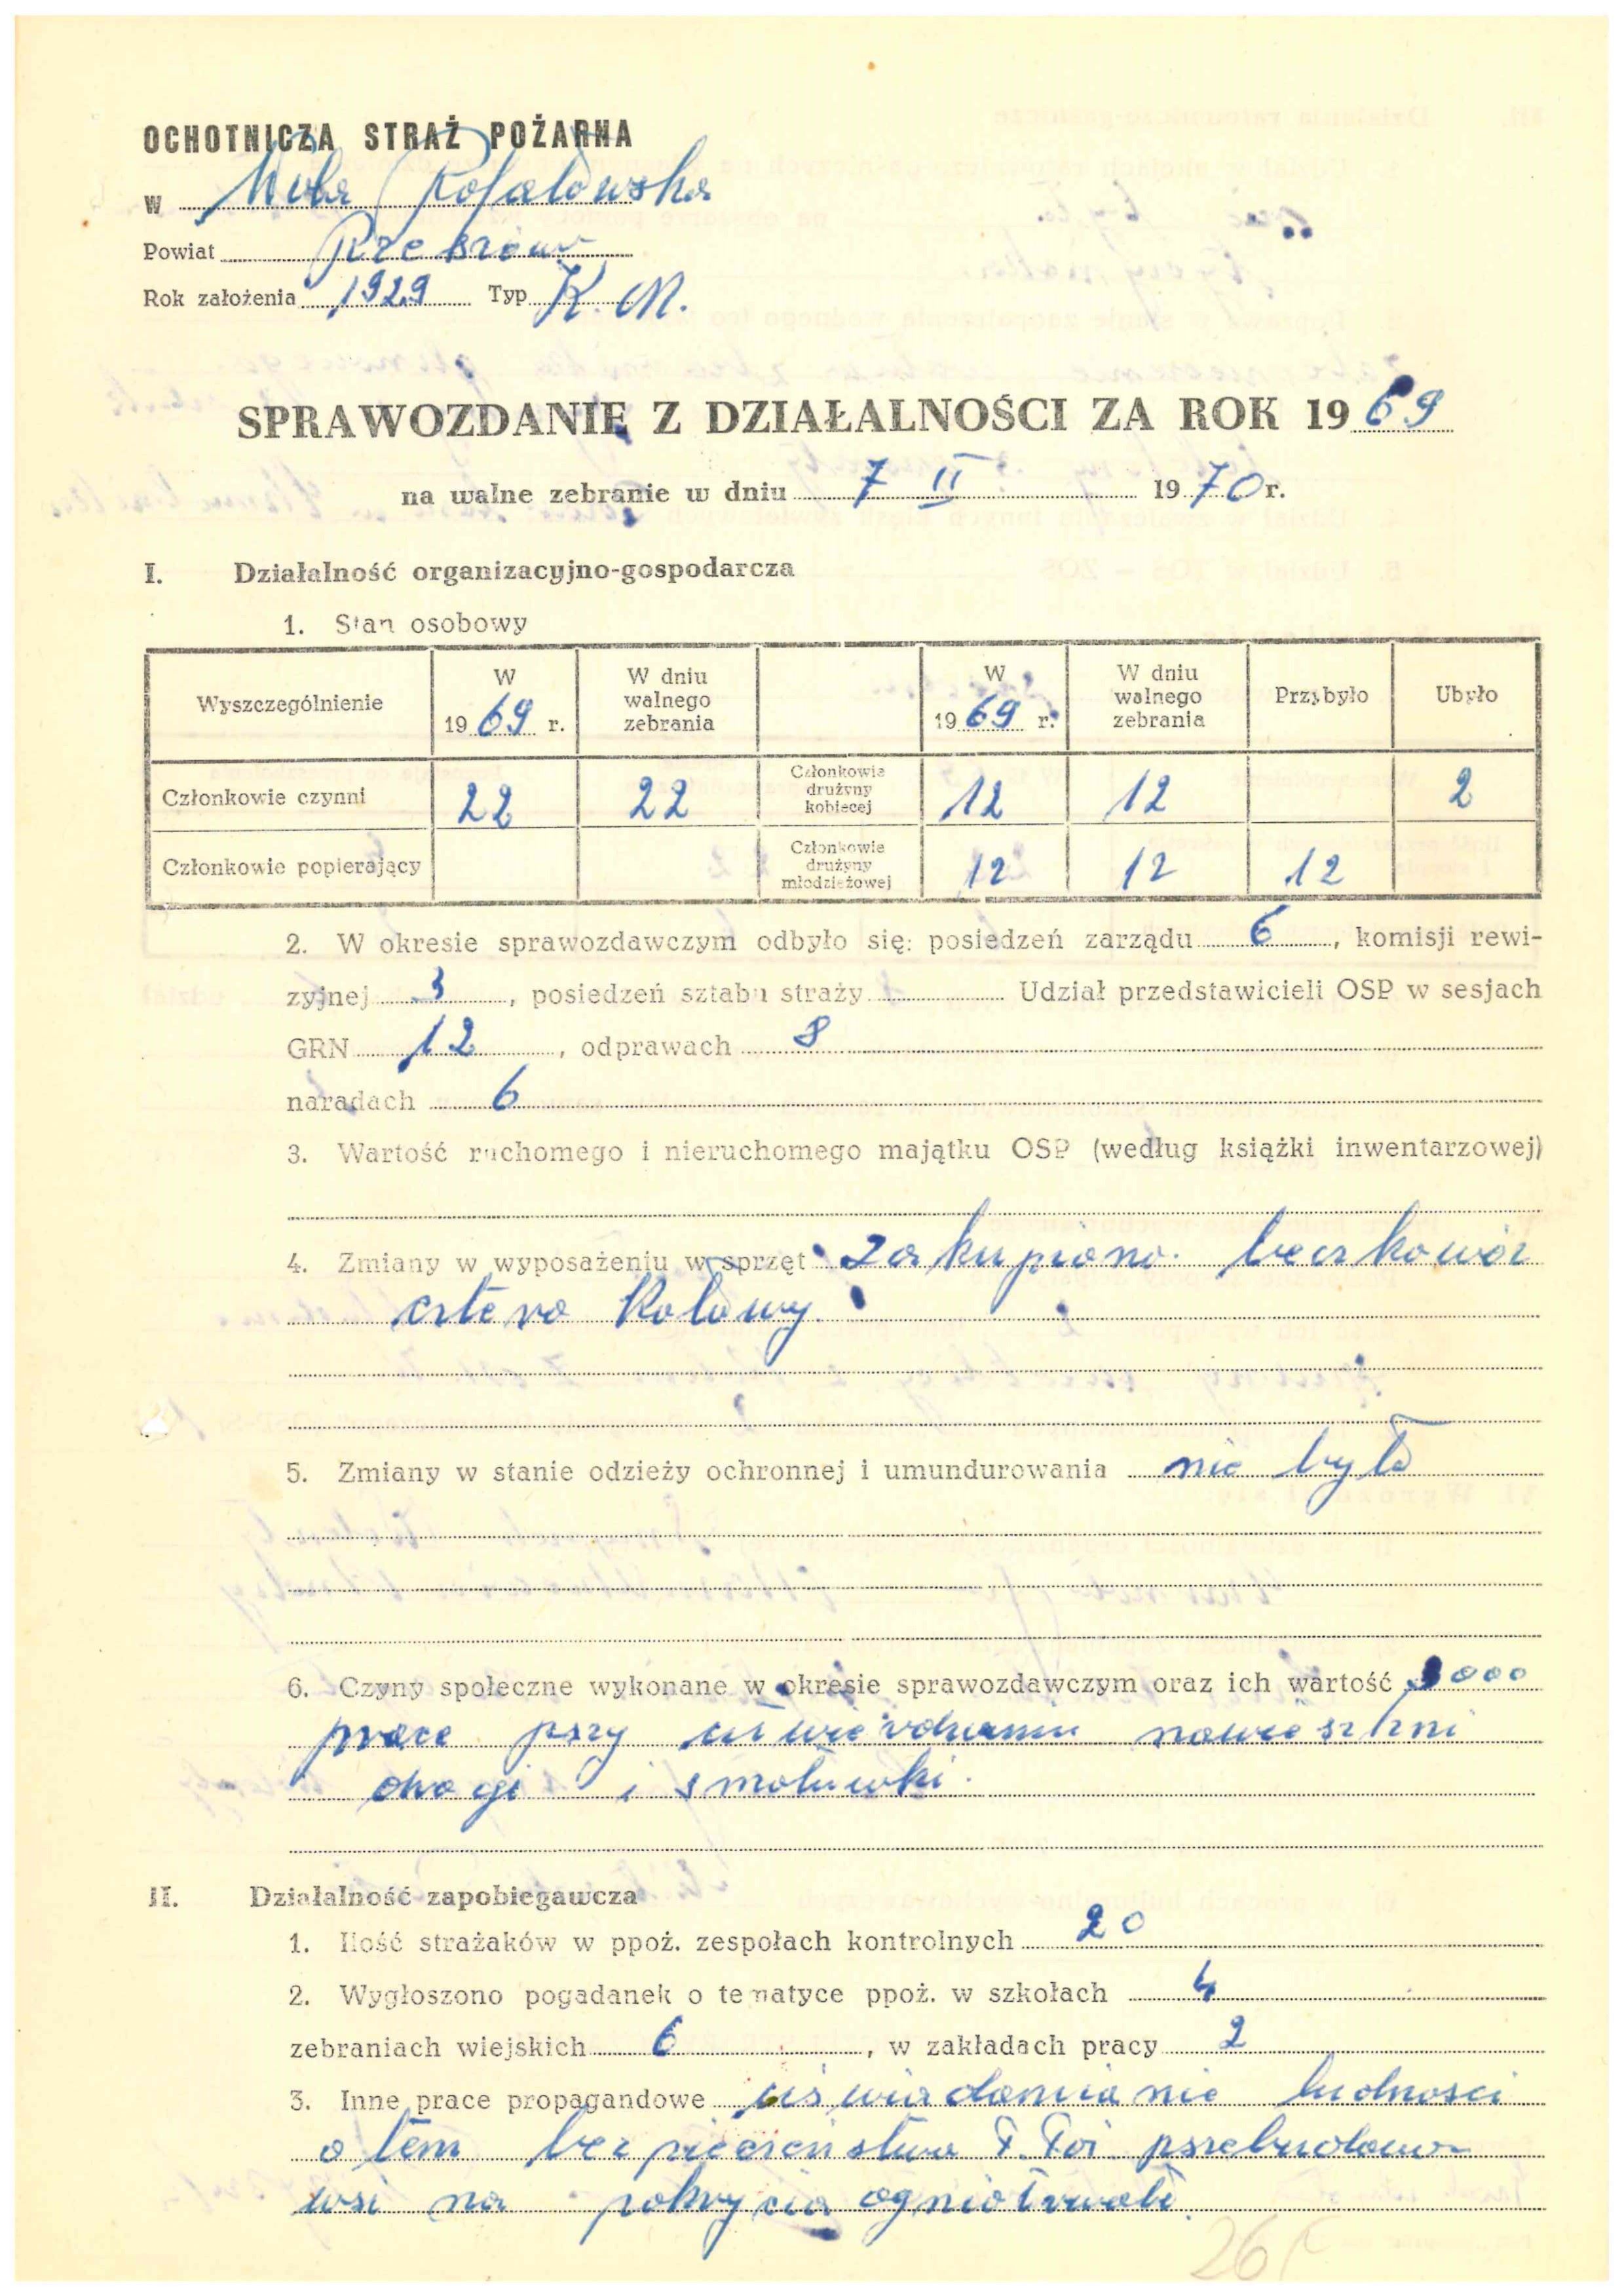 OCHOTNICZA STRAŻ POŻARNA
w Wola Rafałowska
Powiat Rzeszów
Rok założenia 1929 Typ K. M.
SPRAWOZDANIE Z DZIAŁALNOŚCI ZA ROK 1969
na walne zebranie w dniu 7 II 1970 r.
I. Działalność organizacyjno-gospodarcza
1. Stan osobowy
Wyszczególnienie | W 1969 r. | W dniu walnego zebrania | | W 1969 r. | W dniu walnego zebrania | Przybyło | Ubyło
Członkowie czynni | 22 | 22 | Członkowie drużyny kobiecej | 12 | 12 | | 2
Członkowie popierający | | | Członkowie drużyny młodzieżowej | 12 | 12 | 12 |
2. W okresie sprawozdawczym odbyło się: posiedzeń zarządu 6, komisji rewi-
zyjnej 3, posiedzeń sztabu straży Udział przedstawicieli OSP w sesjach
GRN 12, odprawach 8
naradach 6
3. Wartość ruchomego i nieruchomego majątku OSP (według książki inwentarzowej)
4. Zmiany w wyposażeniu w sprzęt zakupiono beczkowóz
cztero kołowy
5. Zmiany w stanie odzieży ochronnej i umundurowania nie było
6. Czyny społeczne wykonane w okresie sprawozdawczym oraz ich wartość 000
prace pszy nawieszhni
drogi i
II. Działalność zapobiegawcza
1. Ilość strażaków w ppoż. zespołach kontrolnych 20
2. Wygłoszono pogadanek o tematyce ppoż. w szkołach 4
zebraniach wiejskich 6, w zakładach pracy 2
3. Inne prace propagandowe uświadamianie ludności
o tem bezpieczeństwa P. Poż. pszebudowa
wsi na pokrycia ogniotrwałe
26